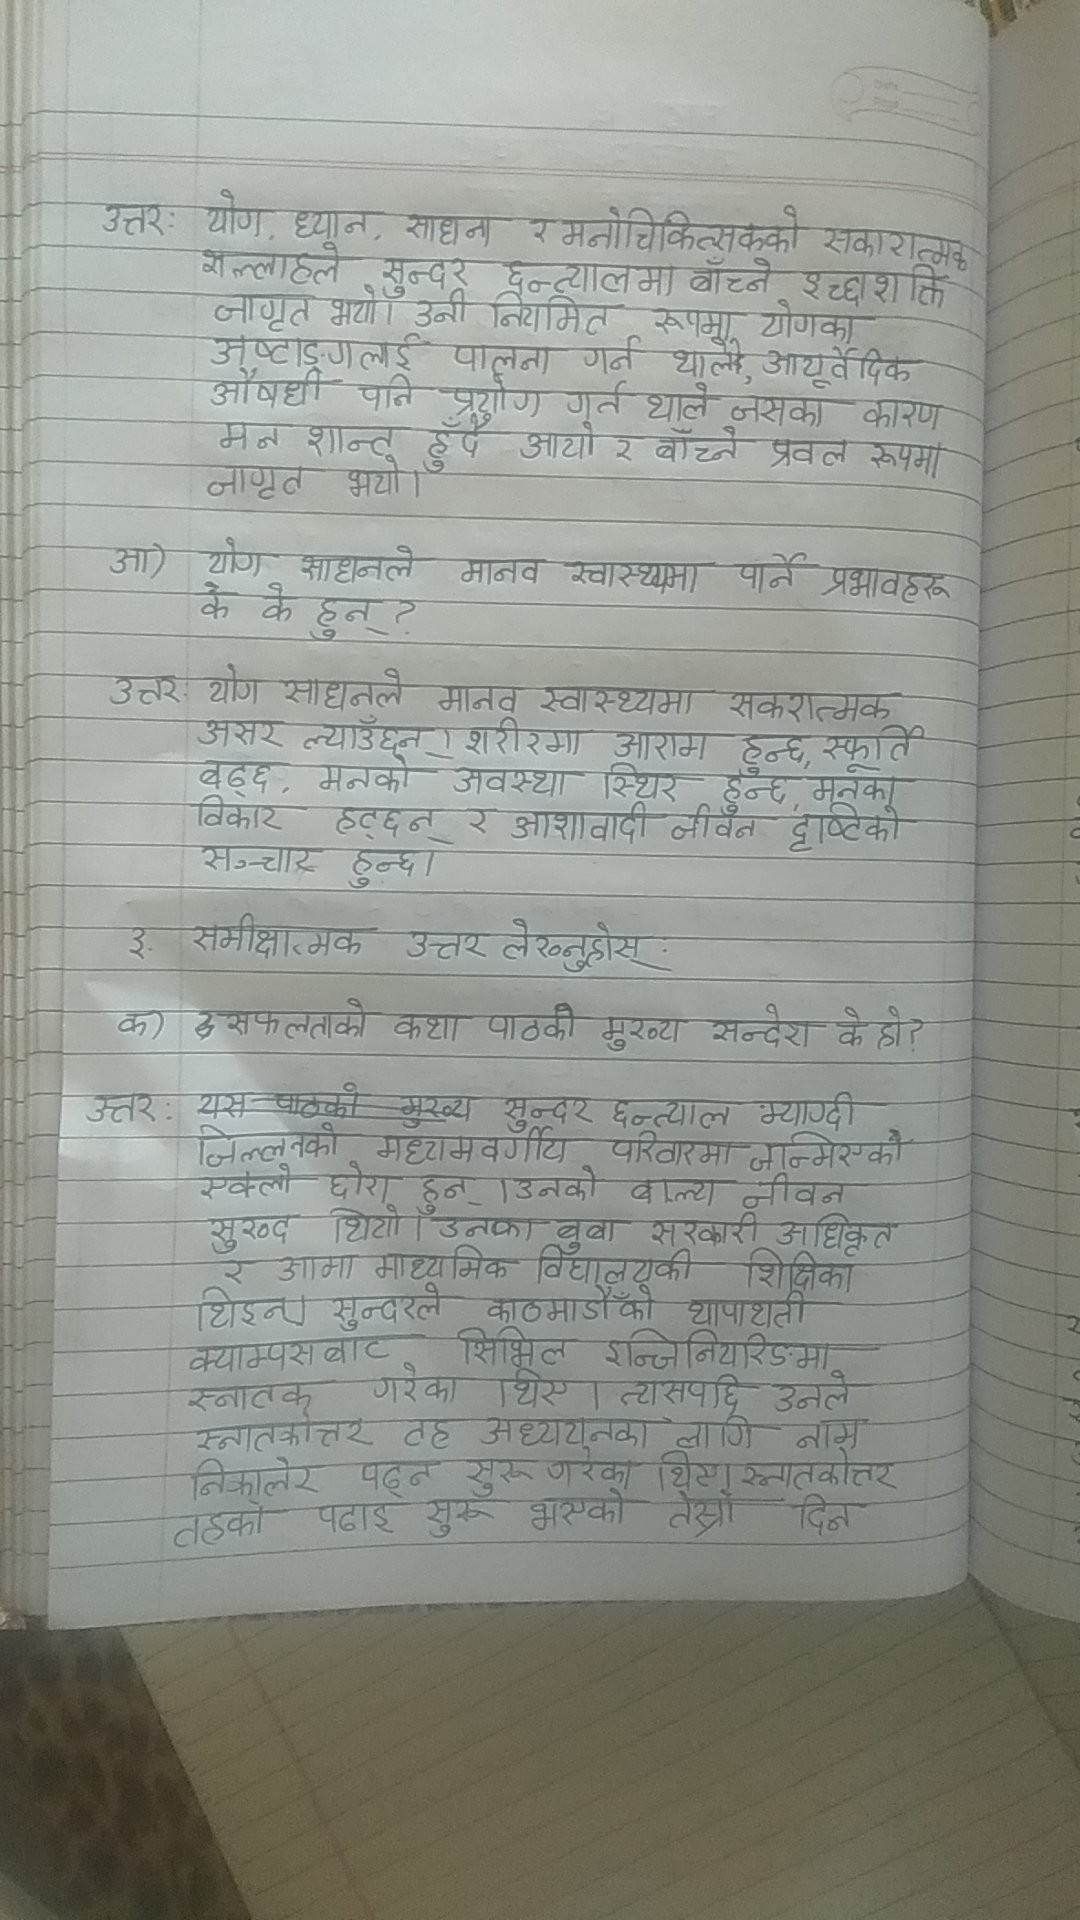 उत्तरः योग, ध्यान, साधना र मनोचिकित्सकको सकारात्मक
सल्लाहले सुन्दर छन्त्यालमा बाँच्ने इच्छाशक्ति
जागृत भयो। उनी नियमित रूपमा योगका
अष्टाङ्गलाई पालना गर्न थाले, आयूर्वेदिक
औषधी पनि प्रयोग गर्न थाले जसका कारण
मन शान्त हुँदै आयो र बाँच्ने प्रवल रूपमा
जागृत भयो।
आ) योग साधनले मानव स्वास्थ्यमा पार्ने प्रभावहरू
के के हुन् ?
उत्तरः योग साधनले मानव स्वास्थ्यमा सकरात्मक
असर ल्याउँछन्। शरीरमा आराम हुन्छ, स्फूर्ति
बढ्छ, मनको अवस्था स्थिर हुन्छ, मनका
विकार हट्छन् र आशावादी जीवन दृष्टिको
सञ्चार हुन्छ।
३. समीक्षात्मक उत्तर लेख्नुहोस् :
क) सफलताको कथा पाठको मुख्य सन्देश के हो?
उत्तरः यस पाठको मुख्य सुन्दर छन्त्याल म्याग्दी
जिल्लाको मध्यामवर्गीय परिवारमा जन्मिएको
एक्लो छोरा हुन्। उनको बाल्य जीवन
सुखद थियो। उनका बुबा सरकारी अधिकृत
र आमा माध्यमिक विद्यालयकी शिक्षिका
थिइन्। सुन्दरले काठमाडौँको थापाथली
क्याम्पसबाट सिभिल इन्जिनियरिङमा
स्नातक गरेका थिए। त्यसपछि उनले
स्नातकोत्तर तह अध्ययनका लागि नाम
निकालेर पढ्न सुरू गरेका थिए। स्नातकोत्तर
तहको पढाइ सुरू भएको तेस्रो दिन